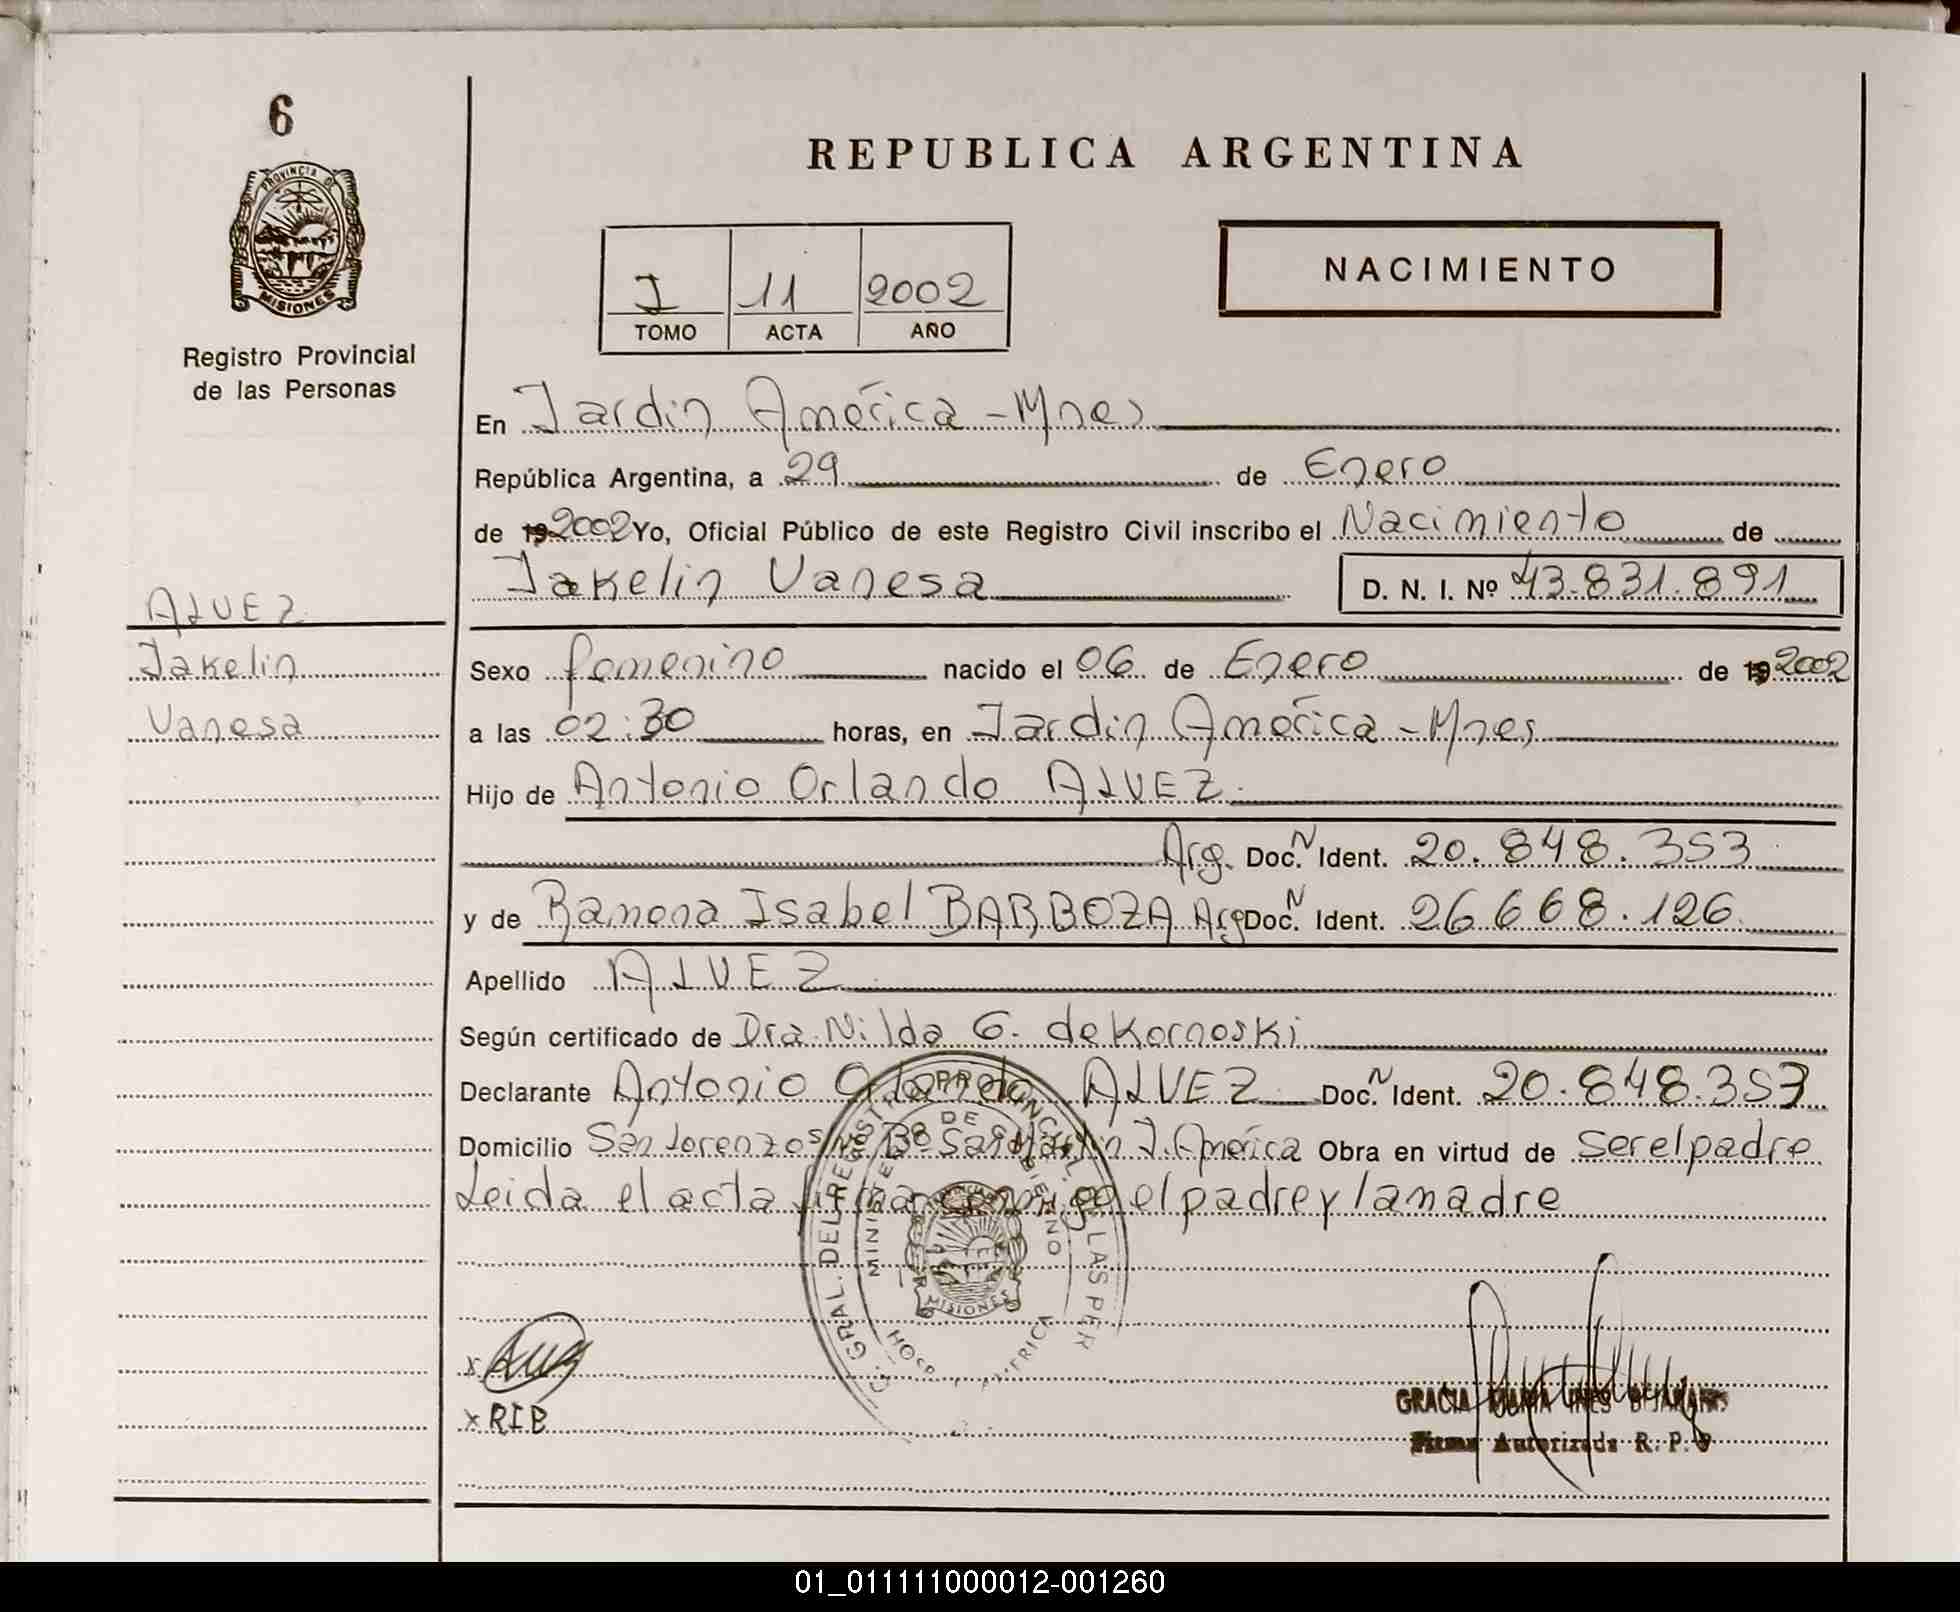 6
PROVINCIA DE
MISIONES
Registro Provincial
de las Personas
ALVEZ
Jakelin
Vanesa
REPUBLICA ARGENTINA
I 11 2002
TOMO ACTA AÑO
NACIMIENTO
En Jardin América - Mnes
República Argentina, a 29 de Enero
de 19 2002 Yo, Oficial Público de este Registro Civil inscribo el Nacimiento de
Jakelin Vanesa D. N. I. Nº 43.831.891
Sexo femenino nacido el 06 de Enero de 19 2002
a las 02:30 horas, en Jardin América - Mnes
Hijo de Antonio Orlando ALVEZ
Arg. Doc. N Ident. 20.848.353
y de Ramona Isabel BARBOZA Arg Doc. N Ident. 26.668.126
Apellido ALVEZ
Según certificado de Dra. Nilda G. de Kornoski
Declarante Antonio Orlando ALVEZ Doc. N Ident. 20.848.353
Domicilio San Lorenzo s/nº Bº San Martin J. América Obra en virtud de ser el padre
Leida el acta firman conmigo el padre y la madre
GRAL. DEL REGISTRO PROVINCIAL DE LAS PER
MINISTERIO DE GOBIERNO
MISIONES
x
x RIB
GRACIA MARIA INES
Firma Autorizada R. P.
01_011111000012-001260